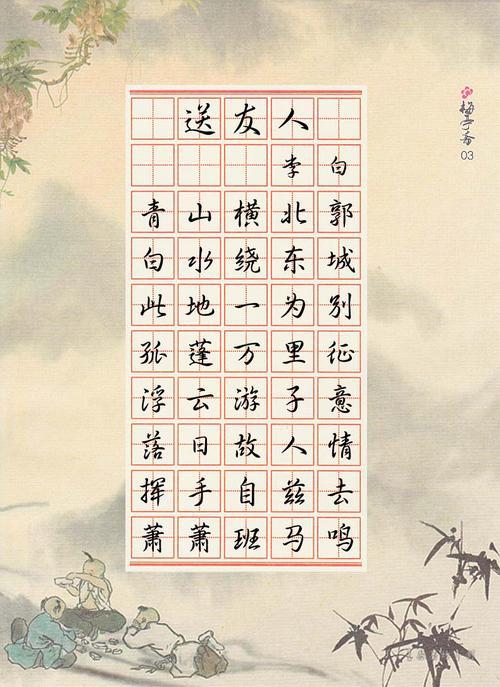 送友人
李白
青山横北郭
白水绕东城
此地一为别
孤蓬万里征
浮云游子意
落日故人情
挥手自兹去
萧萧班马鸣
03